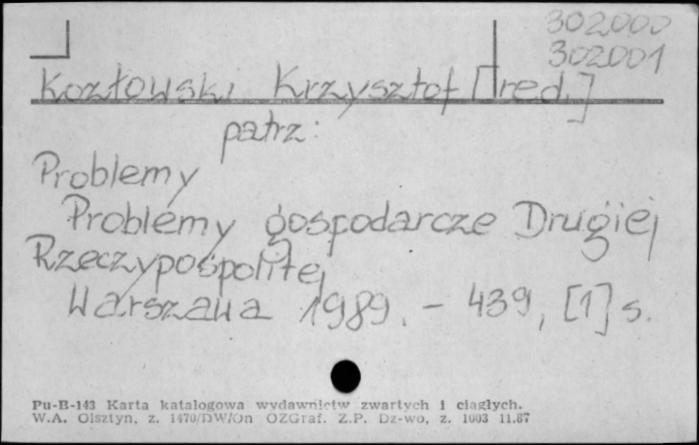 302000
302001
Kozłowski Krzysztof [red.]
patrz:
Problemy
Problemy gospodarcze Drugiej
Rzeczypospolitej
Warszawa 1989. - 439, [1] s.
Pu-B-143 Karta katalogowa wydawnictw zwartych i ciągłych.
W.A. Olsztyn, z. 1470/DW/On OZGraf. Z.P. Dz-wo, z. 1003 11.87